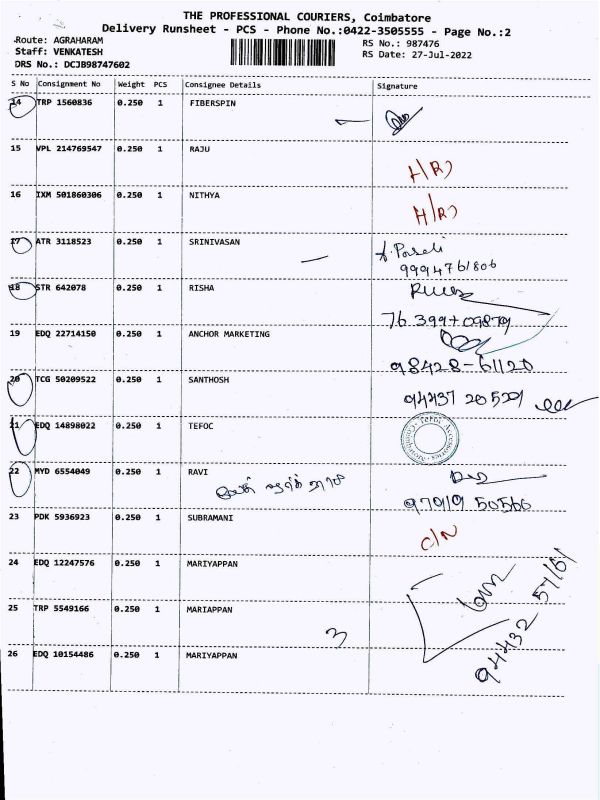 THE PROFESSIONAL COURIERS, Coimbatore
Delivery Runsheet - PCS - Phone No.:0422-3505555 - Page No.:2
Route: AGRAHARAM
RS No.: 987476
Staff: VENKATESH
RS Date: 27-Jul-2022
DRS No.: DCJB98747602
S No Consignment No Weight PCS Consignee Details Signature
14 TRP 1560836 0.250 1 FIBERSPIN
15 VPL 214769547 0.250 1 RAJU
H/R)
16 IXM 501860306 0.250 1 NITHYA
H/R)
17 ATR 3118523 0.250 1 SRINIVASAN
9994761806
18 STR 642078 0.250 1 RISHA
19 EDQ 22714150 0.250 1 ANCHOR MARKETING
98428-61120
20 TCG 50209522 0.250 1 SANTHOSH
21 EDQ 14898022 0.250 1 TEFOC
22 MYD 6554049 0.250 1 RAVI
23 PDK 5936923 0.250 1 SUBRAMANI
C/N
24 EDQ 12247576 0.250 1 MARIYAPPAN
25 TRP 5549166 0.250 1 MARIAPPAN
3
94432 57161
26 EDQ 10154486 0.250 1 MARIYAPPAN